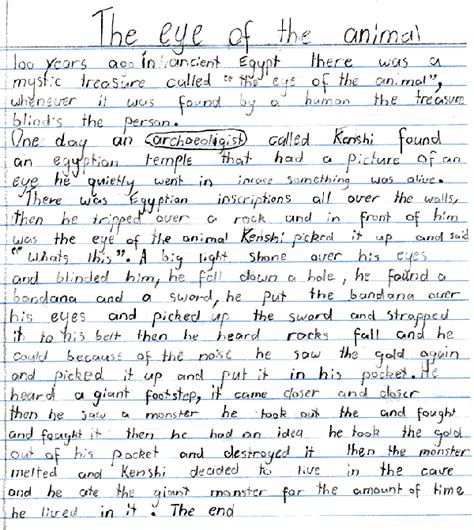 The eye of the animal
100 years ago in ancient Egypt there was a
mystic treasure called "the eye of the animal",
whenever it was found by a human the treasure
blind's the person.
One day an archaeoligist called Kenshi found
an egyption temple that had a picture of an
eye he quietly went in incase something was alive.
There was Egyptian inscriptions all over the walls,
then he tripped over a rock and in front of him
was the eye of the animal Kenshi picked it up and said
"whats this". A big light shone over his eyes
and blinded him, he fell down a hole, he found a
bandana and a sword, he put the bandana over
his eyes and picked up the sword and strapped
it to his belt then he heard rocks fall and he
could because of the noise he saw the gold again
and picked it up and put it in his pocket. He
heard a giant footstep, it came closer and closer
then he saw a monster he took out the and fought
and fought it then he had an idea he took the gold
out of his pocket and destroyed it then the monster
melted and Kenshi decided to live in the cave
and he ate the giant monster for the amount of time
he lived in it. The end